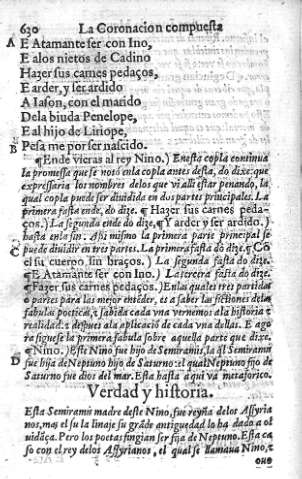 630 La Coronacion compuesta
A E Atamante ser con Ino,
E alos nietos de Cadino
Hazer sus carnes pedaços,
E arder, y ser ardido
A Iason, con el marido
Dela biuda Penelope,
E al hijo de Liriope,
B Pesa me por ser nascido.
¶Ende vieras al rey Nino.) Enesta copla continua
la promessa que se notó enla copla antes desta, do dixe: que
expressaria los nombres delos que vi alli estar penando, la
qual copla puede ser diuidida en dos partes principales. La
primera fasta ende, do dize. ¶ Hazer sus carnes peda-
ços.) La segunda ende do dize, ¶Y arder y ser ardido.)
hasta en la fin. Assi mismo la primera parte principal se
puede diuidir en tres partes. La primera fasta do dize. ¶Có
el su cuerpo sin braços.) La segunda fasta do dize.
¶E Atamante ser con Ino.) La tercera fasta do dize.
¶Fazer sus carnes pedaços.) Enlas quales tres partidas
o partes para las mejor enteder, es a saber las fictiones delas
fabulas poeticas, z sabida cada vna vernemos ala historia z
realidad: z despues ala aplicació de cada vna dellas. E ago
ra siguese la primera fabula sobre aquella parte que dixe.
¶Nino.) Este Nino fue hijo de Semiramis, la ql Semirami
D fue hija de Neptuno hijo de Saturno: el qual Neptuno fijo de
Saturno fue dios del mar. Esta hasta aqui va metaforico.
Verdad y historia.
Esta Semiramis madre deste Nino, fue reyna delos Assyria
nos, mas el su linaje su gráde antiguedad lo ha dado a ol
uidáça. Pero los poetas fingian ser fija de Neptuno. Esta ca
so con el rey delos Assyrianos, el qual se llamaua Nino, z
oue